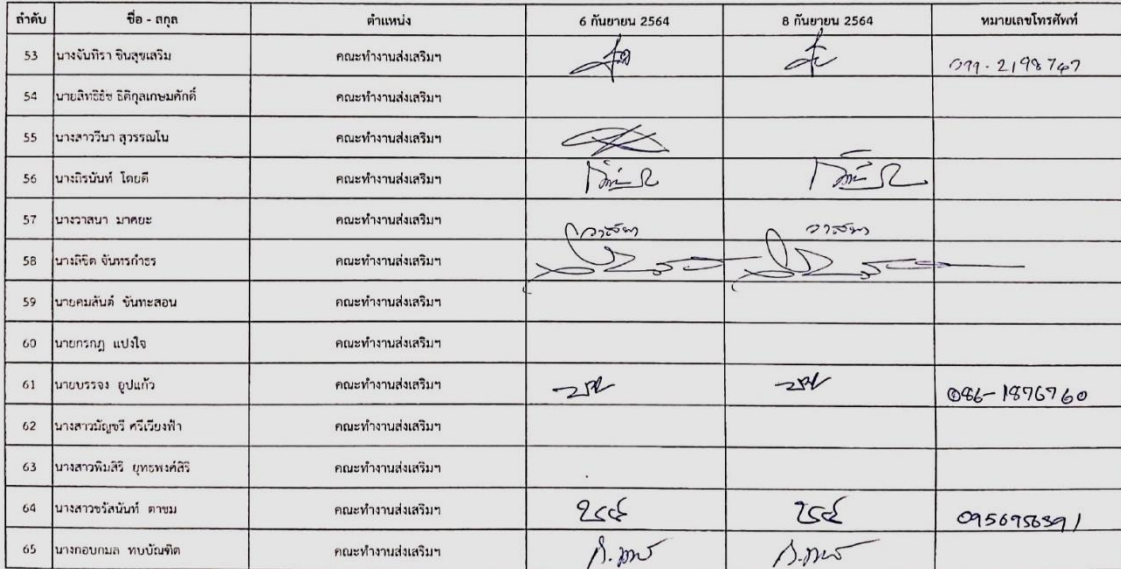 ลำดับ ชื่อ - สกุล ตำแหน่ง 6 กันยายน 2564 8 กันยายน 2564 หมายเลขโทรศัพท์
53 นางจันทิรา ชินสุขเสริม คณะทำงานส่งเสริมฯ
54 นายสิทธิธัช ธิติกุลเกษมศักดิ์ คณะทำงานส่งเสริมฯ
55 นางสาววีนา สุวรรณโน คณะทำงานส่งเสริมฯ
56 นางถิรนันท์ โดยดี คณะทำงานส่งเสริมฯ
57 นางวาสนา มาคยะ คณะทำงานส่งเสริมฯ วาสนา วาสนา
58 นางลิขิต จันทรกำธร คณะทำงานส่งเสริมฯ
59 นายคมสันต์ ขันทะสอน คณะทำงานส่งเสริมฯ
60 นายกรกฎ แปงใจ คณะทำงานส่งเสริมฯ
61 นายบรรจง อูปแก้ว คณะทำงานส่งเสริมฯ 086-1876760
62 นางสาวมัญชรี ศรีเวียงฟ้า คณะทำงานส่งเสริมฯ
63 นางสาวพิมสิริ ยุทธพงค์สิริ คณะทำงานส่งเสริมฯ
64 นางสาวชรัสนันท์ ตาชม คณะทำงานส่งเสริมฯ
65 นางกอบกมล ทบบัณฑิต คณะทำงานส่งเสริมฯ